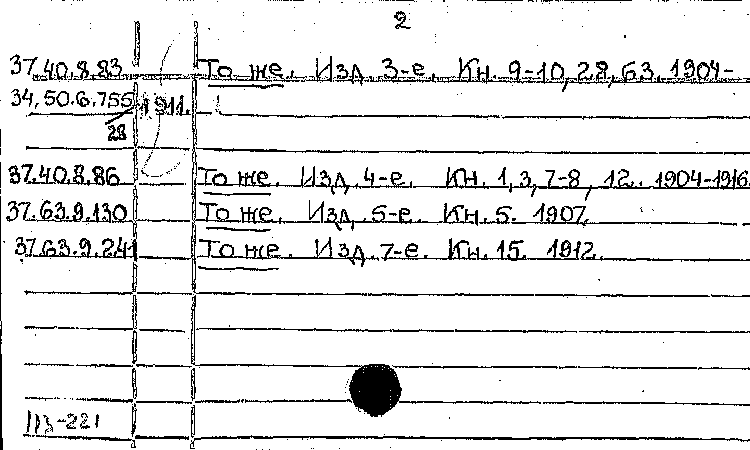 2
37.40.8.83 То же. Изд. 3-е. Кн. 9-10, 28, 63. 1904-
34,50.6.755 1911.
28
37.40.8.86 То же. Изд. 4-е. Кн. 1, 3, 7-8, 12. 1904-1916
37.63.9.130 То же. Изд. 5-е. Кн. 5. 1907.
37.63.9.241 То же. Изд. 7-е. Кн. 15. 1912.
113-221